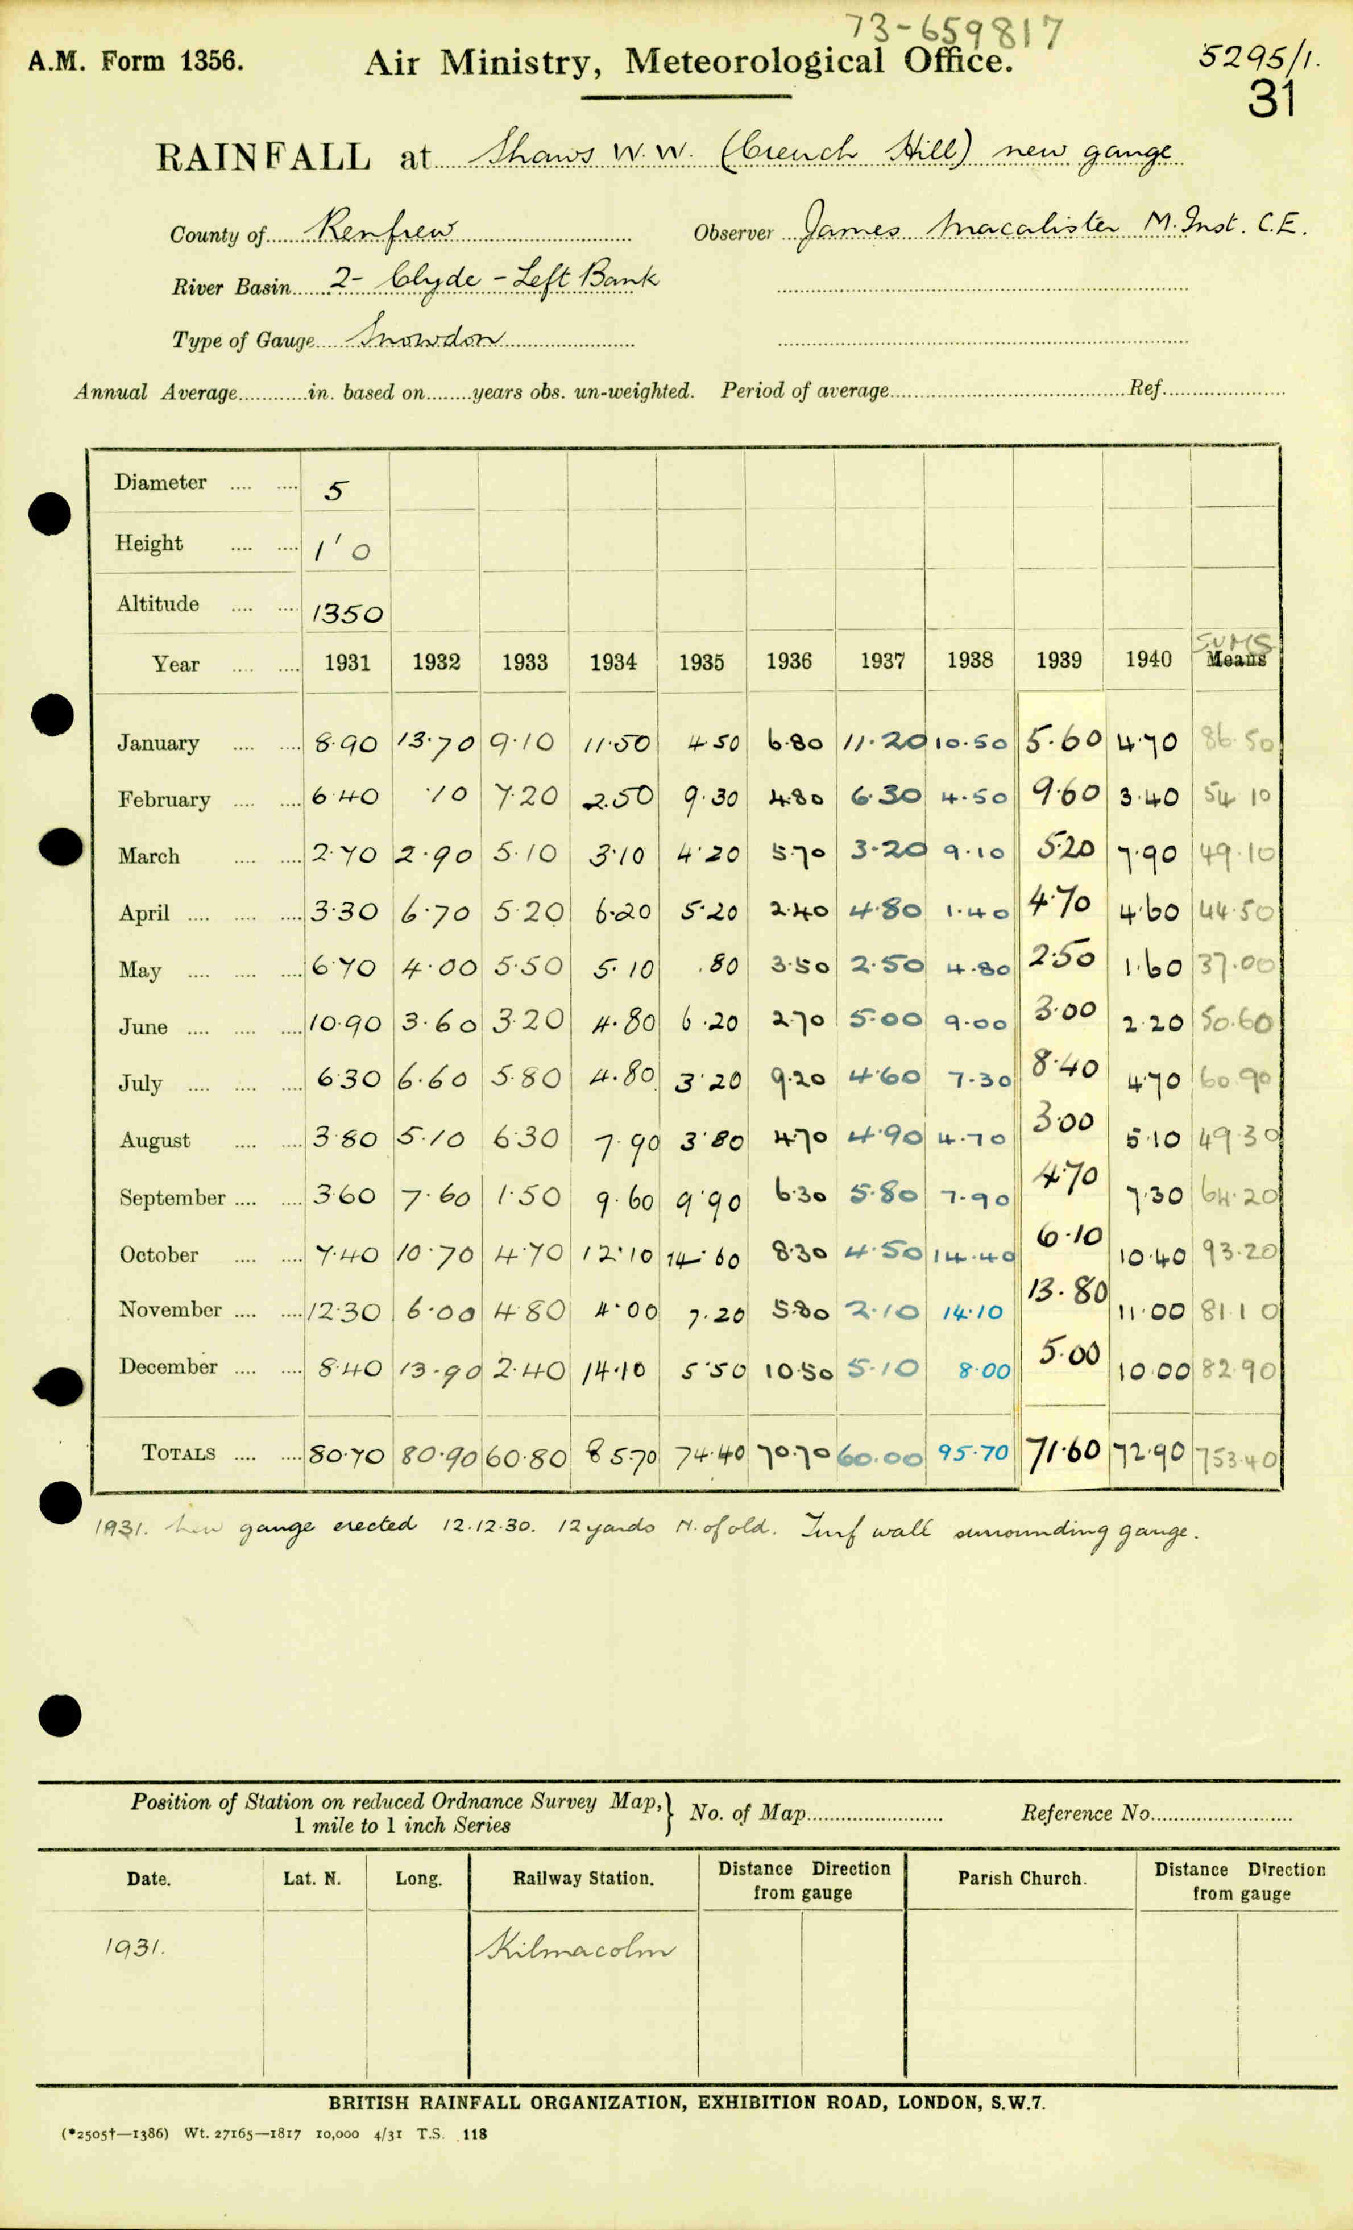 73-659817
A.M. Form 1356. Air Ministry, Meteorological Office. 5295/1.
31
RAINFALL at Shaws W.W. (Creuch Hill) new gauge
County of Renfrew Observer James Macalister M.Inst. C.E.
River Basin 2- Clyde - Left Bank
Type of Gauge Snowdon
Annual Average in. based on years obs. un-weighted. Period of average Ref.
Diameter 5
Height 1' 0
Altitude 1350
SUMS
Year 1931 1932 1933 1934 1935 1936 1937 1938 1939 1940 Means
January 8.90 13.70 9.10 11.50 4.50 6.80 11.20 10.50 5.60 4.70 86.50
February 6.40 .10 7.20 2.50 9.30 4.80 6.30 4.50 9.60 3.40 54.10
March 2.70 2.90 5.10 3.10 4.20 5.70 3.20 9.10 5.20 7.90 49.10
April 3.30 6.70 5.20 6.20 5.20 2.40 4.80 1.40 4.70 4.60 44.50
May 6.70 4.00 5.50 5.10 .80 3.50 2.50 4.80 2.50 1.60 37.00
June 10.90 3.60 3.20 4.80 6.20 2.70 5.00 9.00 3.00 2.20 50.60
July 6.30 6.60 5.80 4.80 3.20 9.20 4.60 7.30 8.40 4.70 60.90
August 3.80 5.10 6.30 7.90 3.80 4.70 4.90 4.70 3.00 5.10 49.30
September 3.60 7.60 1.50 9.60 9.90 6.30 5.80 7.90 4.70 7.30 64.20
October 7.40 10.70 4.70 12.10 14.60 8.30 4.50 14.40 6.10 10.40 93.20
November 12.30 6.00 4.80 4.00 7.20 5.80 2.10 14.10 13.80 11.00 81.10
December 8.40 13.90 2.40 14.10 5.50 10.50 5.10 8.00 5.00 10.00 82.90
TOTALS 80.70 80.90 60.80 85.70 74.40 70.70 60.00 95.70 71.60 72.90 753.40
1931. New gauge erected 12.12.30. 12 yards N. of old. Turf wall surrounding gauge.
Position of Station on reduced Ordnance Survey Map, } No. of Map Reference No.
1 mile to 1 inch Series
Date. Lat. N. Long. Railway Station. Distance Direction from gauge Parish Church. Distance Direction from gauge
1931. Kilmacolm
BRITISH RAINFALL ORGANIZATION, EXHIBITION ROAD, LONDON, S.W.7.
(*2505†—1386) Wt. 27165—1817 10,000 4/31 T.S. 118